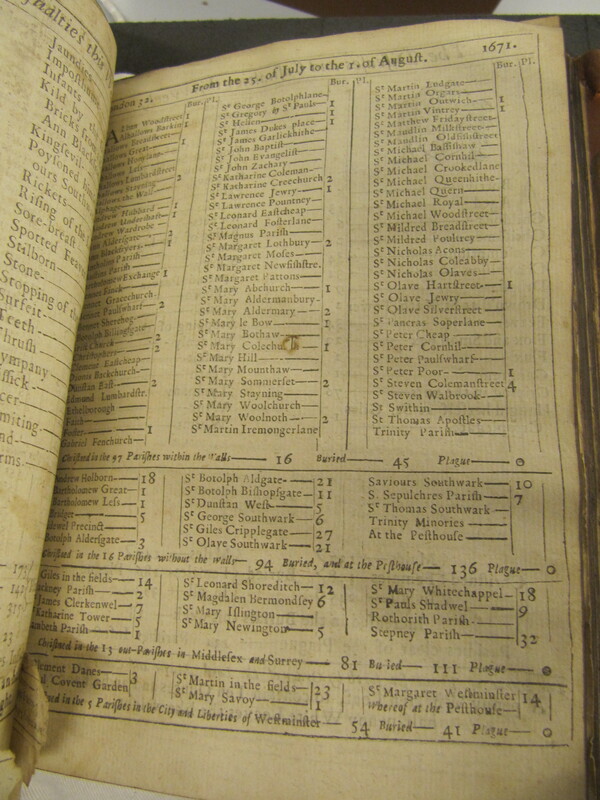 Jaundies
Impostume
Infants
Kild by
Bricks from
Ann Black
Kingsevil
Poysoned
ours Southw
Rickets
Rising of the
Sore-breast
Spotted Feaver
Stilborn
Stone
Stopping of the
Surfeit
Teeth
Thrush
Tympany
Tissick
cer
miting
nd
rms
London 32. From the 25. of July to the 1. of August. 1671.
Bur. Pl.
Bur. Pl.
Bur. Pl.
Woodstreet 1
Barkin 1
Breadstreet
Great
Honylane
Less
Lumbardstr.
Staining 2
the Wall
Hubbard 1
Undershaft 1
Wardrobe
Aldersgate 2
Blackfryers 1
Parish
Parish
Exchange 1
Finck
Gracechurch
Paulswharf 2
Sherehog
Billingsgate 2
Church
Christophers 2
Clement Eastcheap
Dionis Backchurch
Dunstan East 2
Edmund Lumbardstr.
Ethelborough
Faith
Foster 1
Gabriel Fenchurch
St George Botolphlane
St Gregory by St Pauls 1
St Hellen 1
St James Dukes place 1
St James Garlickhithe
St John Baptist
St John Evangelist
St John Zachary
St Katharine Coleman
St Katharine Creechurch 2
St Lawrence Jewry 1
St Lawrence Pountney
St Leonard Eastcheap
St Leonard Fosterlane
St Magnus Parish
St Margaret Lochbury 2
St Margaret Moses
St Margaret Newfishstre.
St Margaret Pattons
St Mary Abchurch 1
St Mary Aldermanbury
St Mary Aldermary 2
St Mary le Bow 1
St Mary Bothaw
St Mary Colechu 1
St Mary Hill
St Mary Mounthaw
St Mary Sommerset 2
St Mary Stayning
St Mary Woolchurch
St Mary Woolnoth 2
St Martin Iremongerlane
St Martin Ludgate
St Martin Orgars
St Martin Outwich 1
St Martin Vintrey 1
St Matthew Fridaystreet
St Maudlin Milkstreet
St Maudlin Oldfishstreet
St Michael Bassishaw
St Michael Cornhil
St Michael Crookedlane
St Michael Queenhithe
St Michael Quern
St Michael Royal
St Michael Woodstreet
St Mildred Breadstreet
St Mildred Poultrey
St Nicholas Acons
St Nicholas Coleabby
St Nicholas Olaves
St Olave Hartstreet 1
St Olave Jewry
St Olave Silverstreet
St Pancras Soperlane
St Peter Cheap
St Peter Cornhil
St Peter Paulswharf
St Peter Poor 1
St Steven Colemanstreet 4
St Steven Walbrook
St Swithin
St Thomas Apostles
Trinity Parish
Christned in the 97 Parishes within the Walls 16 Buried 45 Plague 0
Andrew Holborn 18
Bartholomew Great 1
Bartholomew Less 1
Bridget 5
Bridewel Precinct
Botolph Aldersgate 3
St Botolph Aldgate 21
St Botolph Bishopsgate 11
St Dunstan West 5
St George Southwark 6
St Giles Cripplegate 27
St Olave Southwark 21
Saviours Southwark 10
S. Sepulchres Parish 7
St Thomas Southwark
Trinity Minories
At the Pesthouse
Christned in the 16 Parishes without the Walls 94 Buried, and at the Pesthouse 136 Plague 0
Giles in the fields 14
Hackney Parish 2
James Clerkenwel 7
Katharine Tower 5
Lambeth Parish 1
St Leonard Shoreditch 12
St Magdalen Bermondsey 6
St Mary Islington
St Mary Newington 5
St Mary Whitechappel 18
St Pauls Shadwel 9
Rothorith Parish
Stepney Parish 32
Christned in the 13 out-Parishes in Middlesex and Surrey 81 Buried 111 Plague 0
Clement Danes 3
Paul Covent Garden
St Martin in the fields 23
St Mary Savoy 1
St Margaret Westminster 14
Whereof at the Pesthouse
Christned in the 5 Parishes in the City and Liberties of Westminster 54 Buried 41 Plague 0